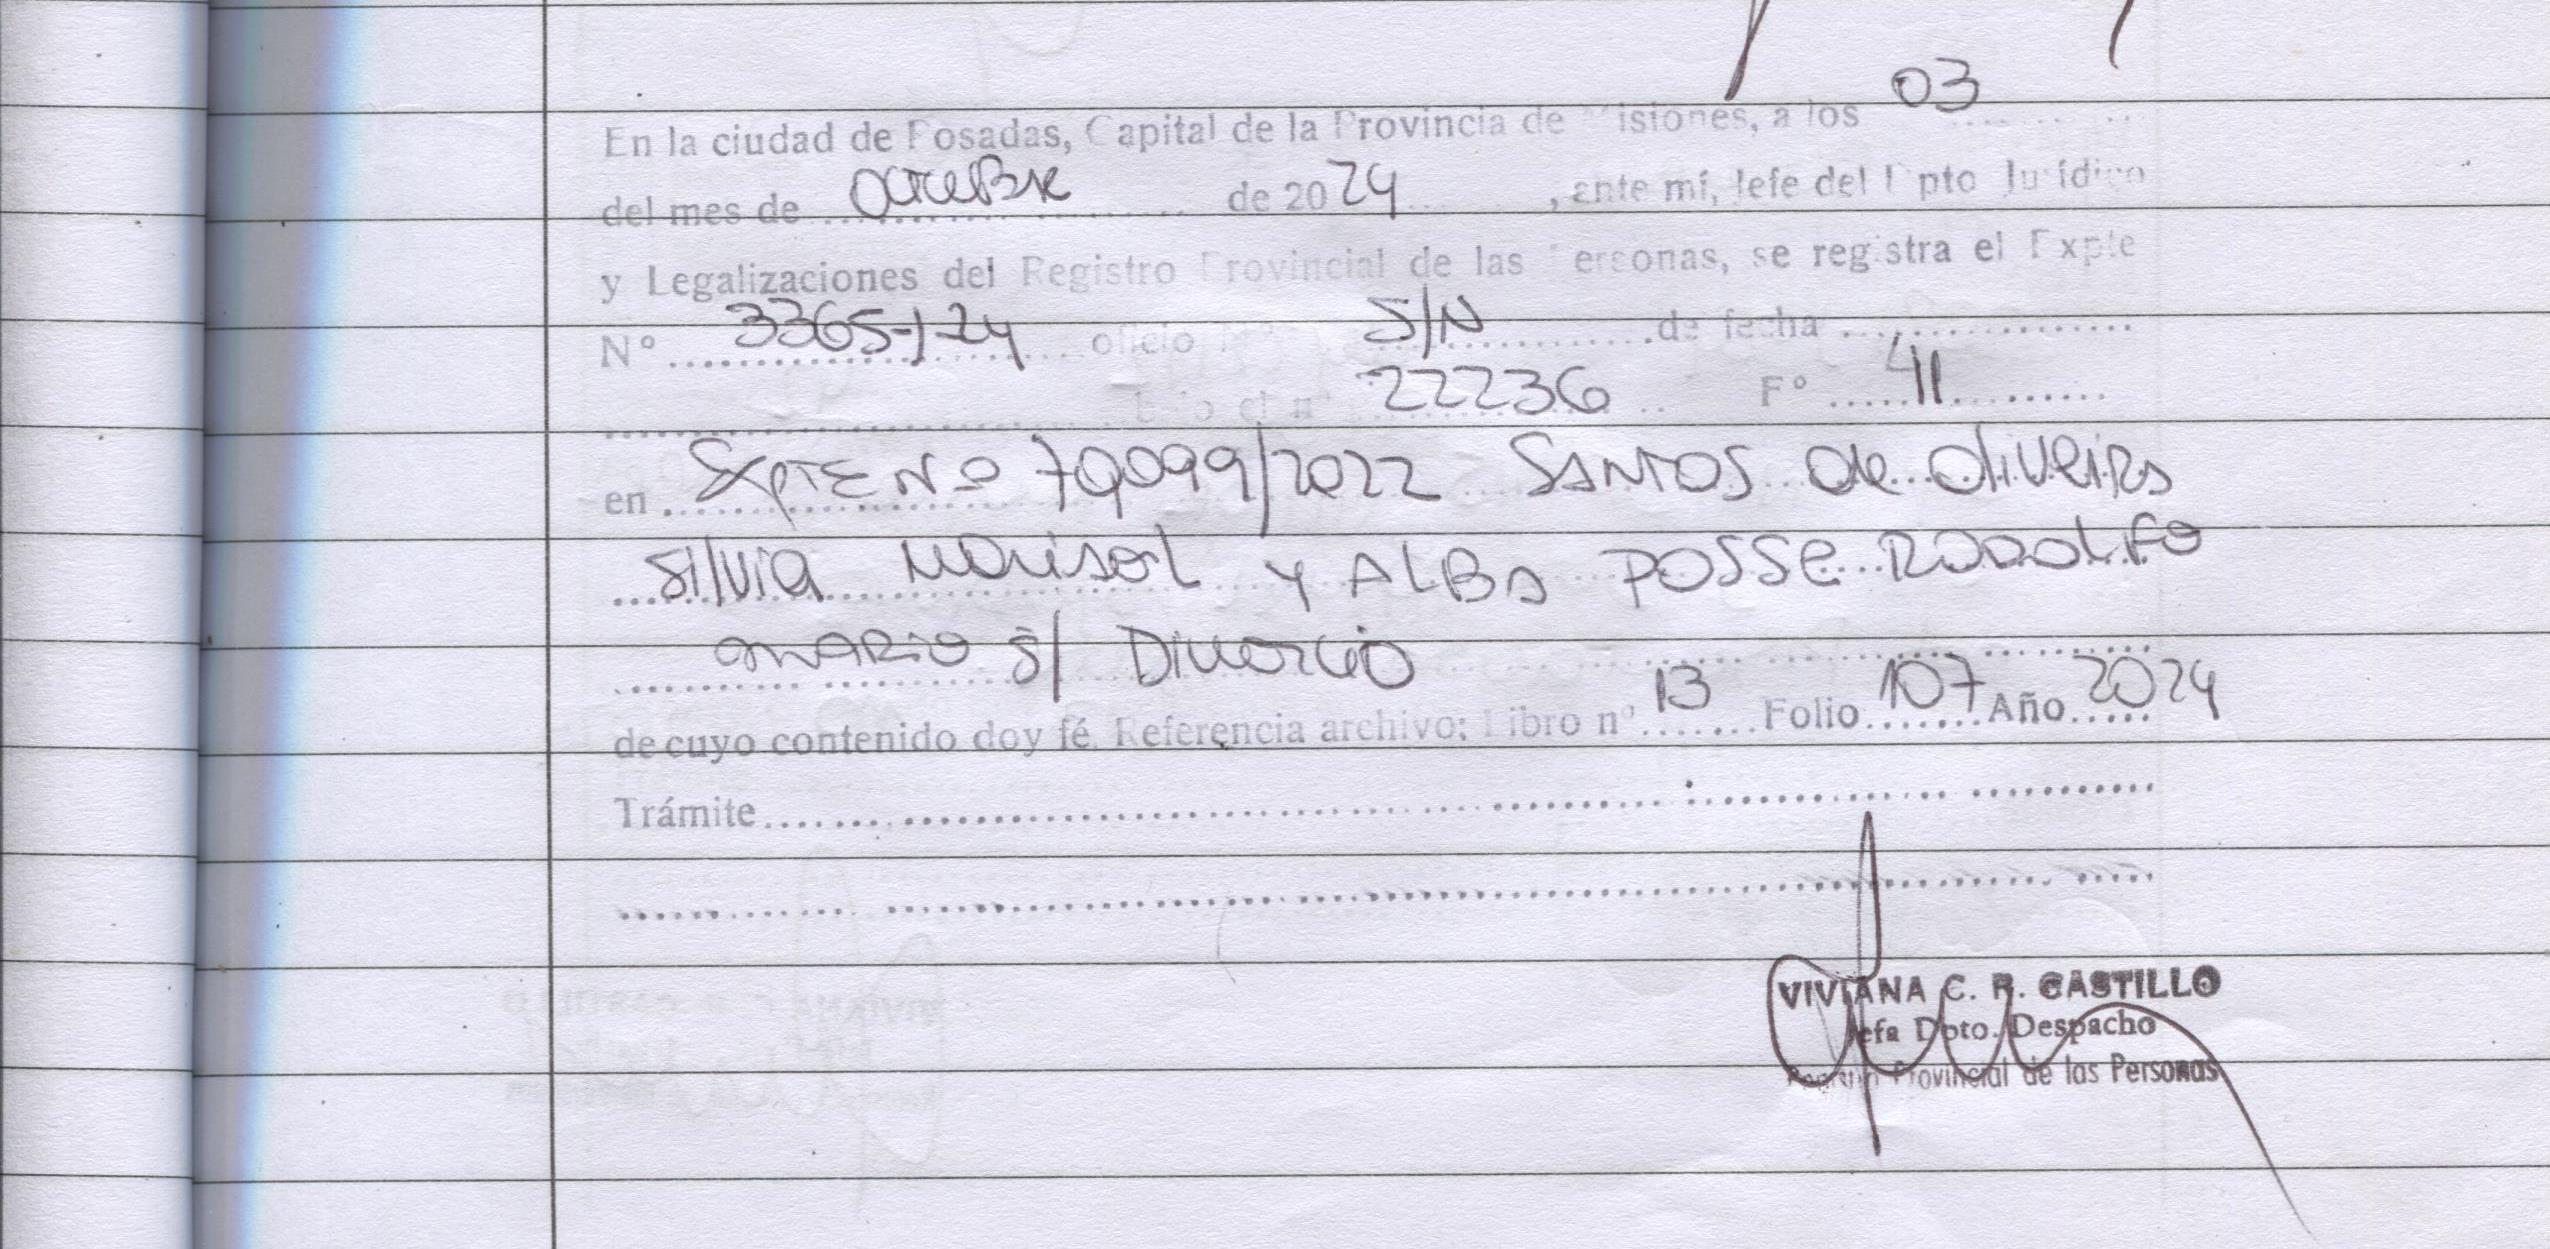 En la ciudad de Posadas, Capital de la Provincia de Misiones, a los 03
del mes de octubre de 2024, ante mí, Jefe del Dpto Jurídico
y Legalizaciones del Registro Provincial de las Personas, se registra el Expte
Nº 3365-/24 oficio Nº S/N de fecha
bajo el nº 22236 Fº 411
en Expte Nº 79099/2022 Santos de Oliveira
Silvia Marisol y Alba Posse Rodolfo
Mario S/ Divorcio
de cuyo contenido doy fé. Referencia archivo: Libro nº 13 Folio 107 Año 2024
Trámite
VIVIANA C. R. CASTILLO
Jefa Dpto. Despacho
Registro Provincial de las Personas